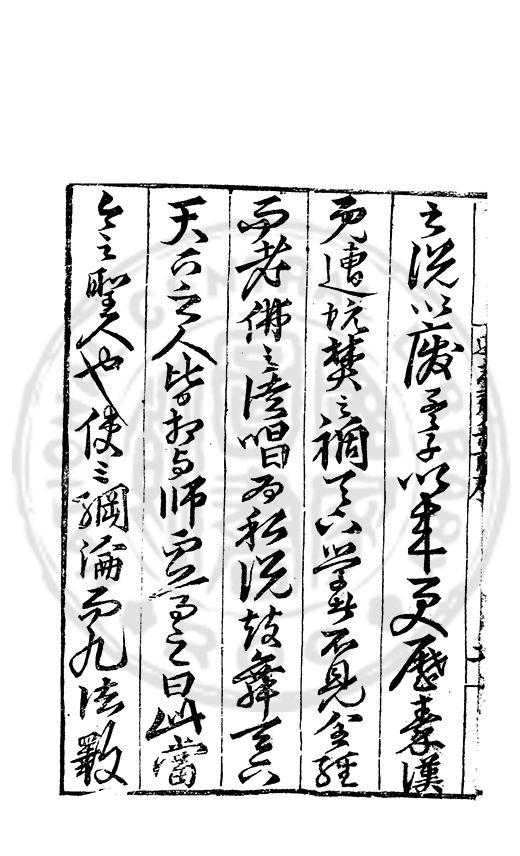 之說以廢孟子以來更歷秦漢
遭坑焚之禍天下學者不見全經
而老佛之徒唱為私說鼓舞天下
天下之人皆相與師而尊之曰此當
今之聖人也使三綱淪而九法斁